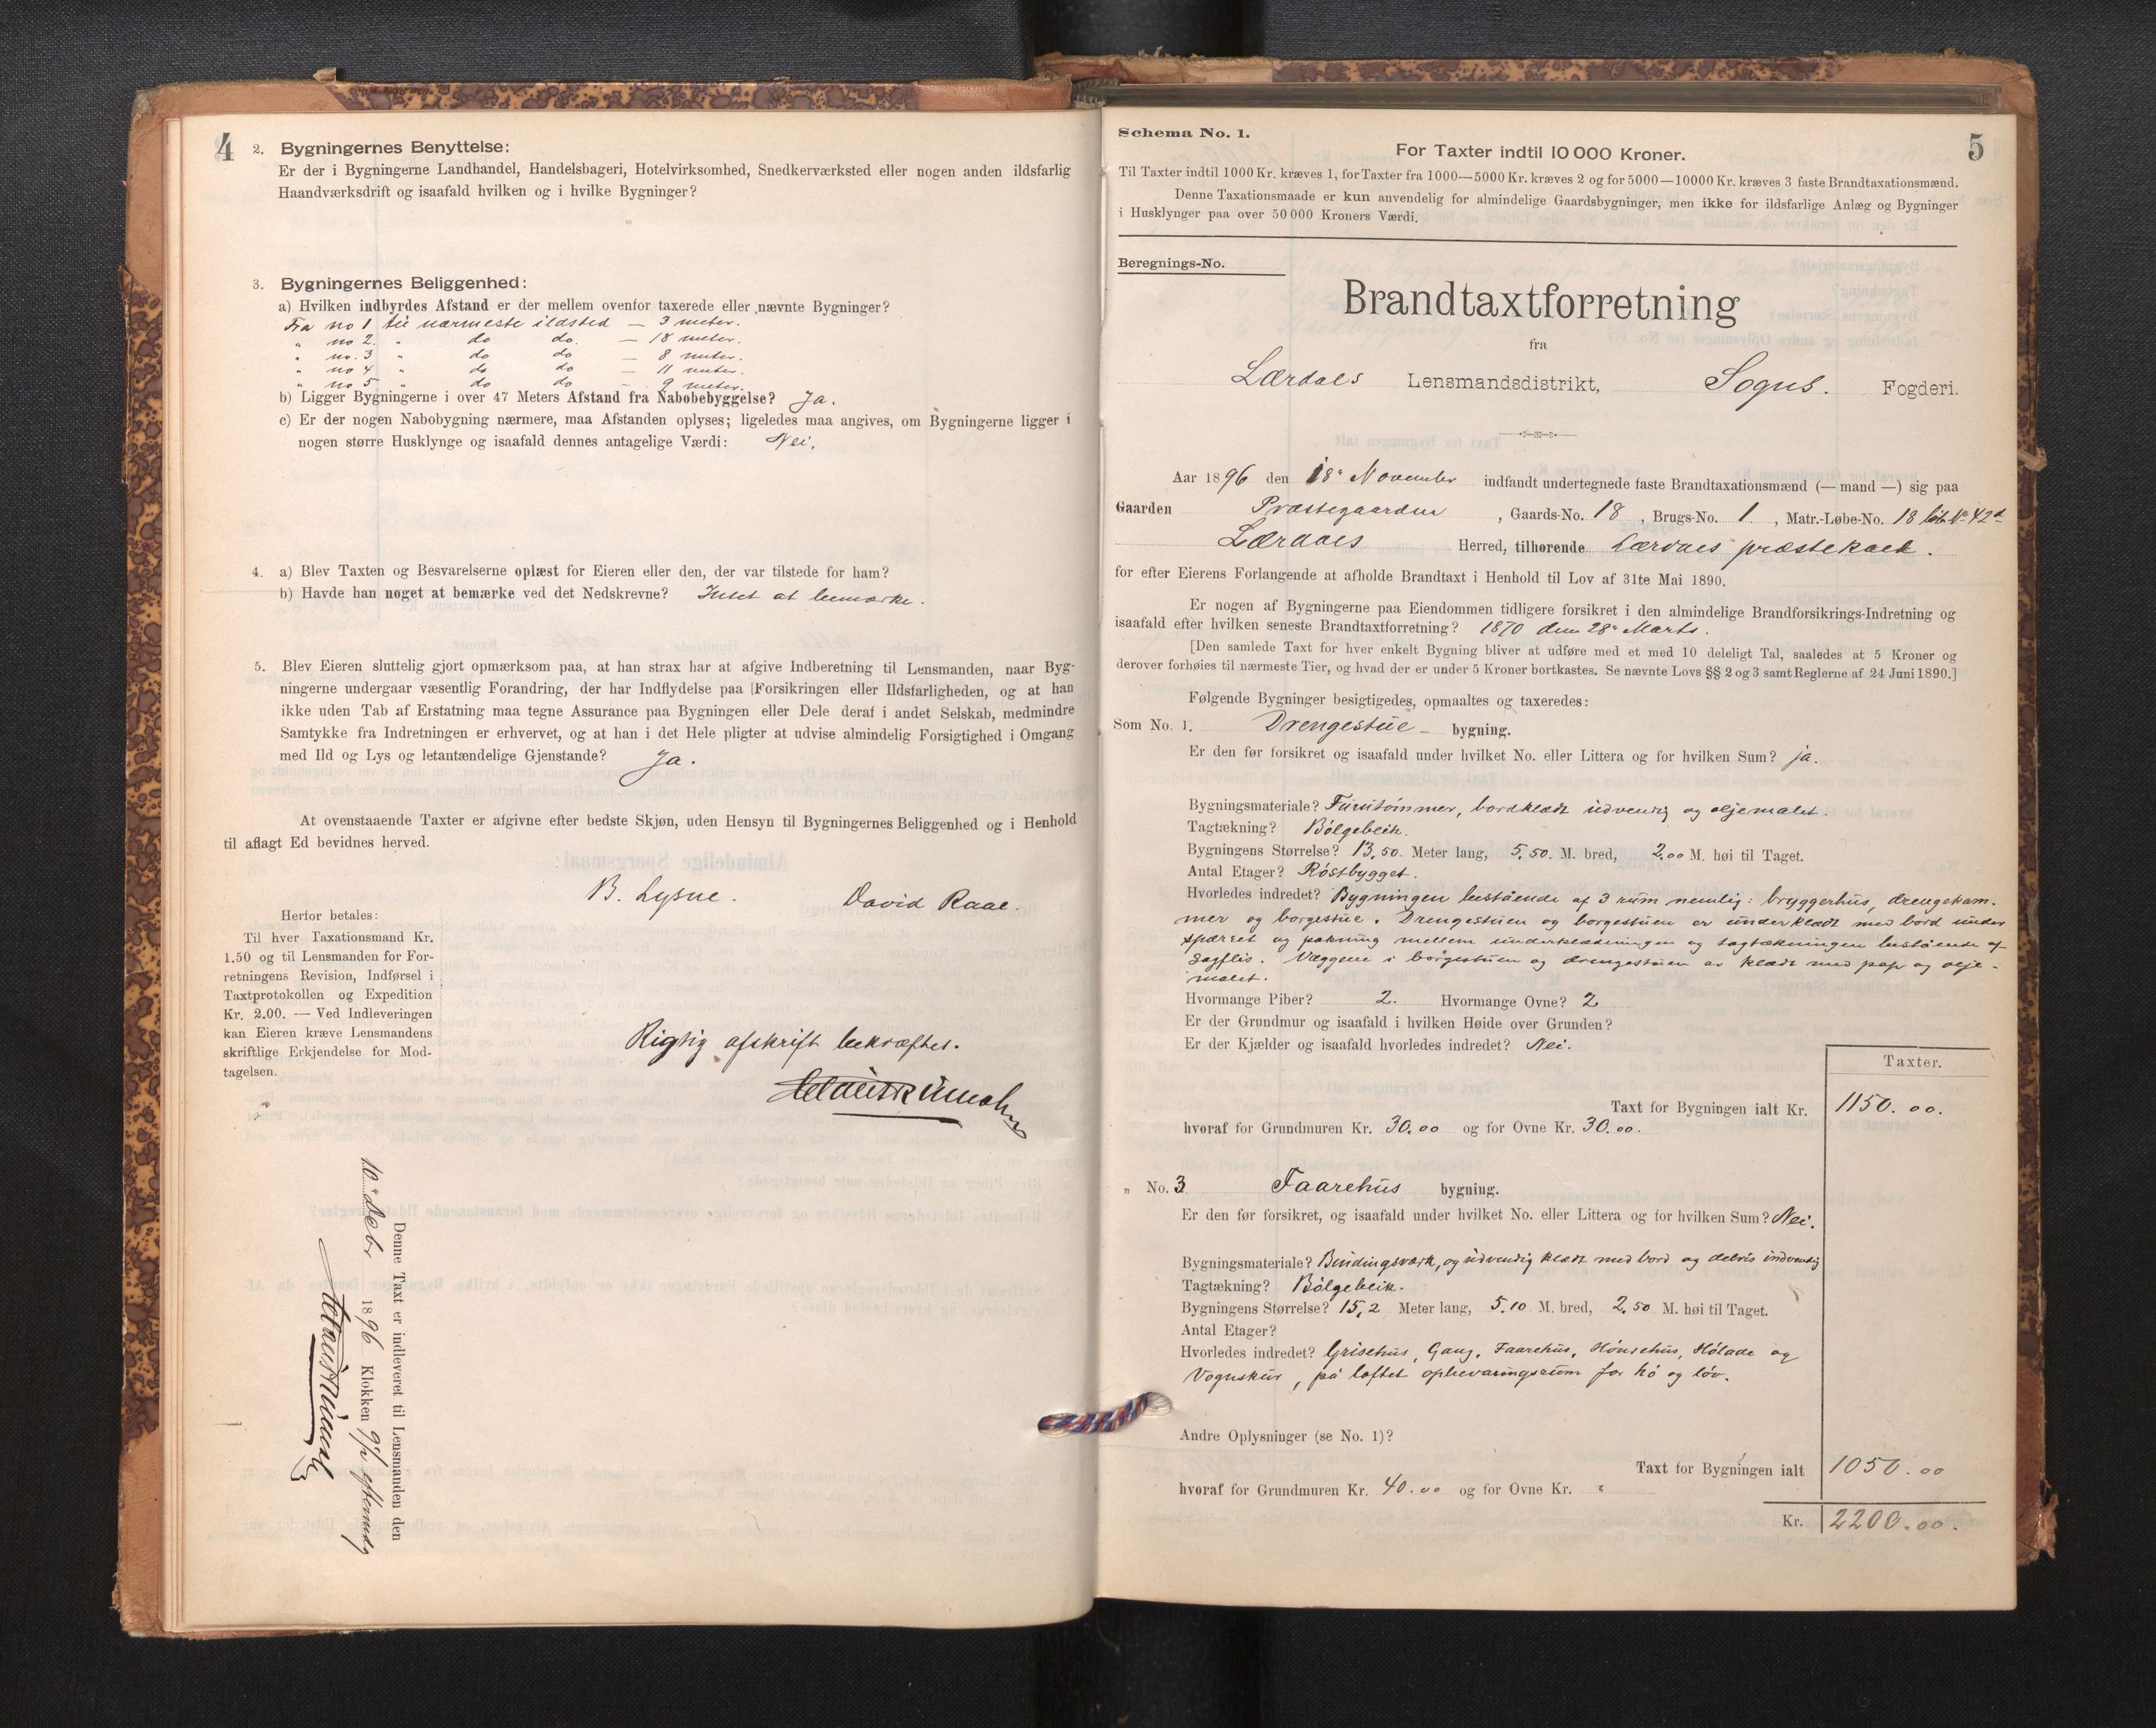 4
2. Bygningernes Benyttelse:
Er der i Bygningerne Landhandel, Handelsbageri, Hotelvirksomhed, Snedkerværksted eller nogen anden ildsfarlig
Haandværksdrift og isaafald hvilken og i hvilke Bygninger?
3. Bygningernes Beliggenhed:
a) Hvilken indbyrdes Afstand er der mellem ovenfor taxerede eller nævnte Bygninger?
Fra no 1 til nærmeste ildsted — 3 meter.
" no 2. " do do. — 18 meter.
" no. 3 " do do — 8 meter.
" no 4 " do do — 11 meter.
" no 5 " do do — 9 meter.
b) Ligger Bygningerne i over 47 Meters Afstand fra Nabobebyggelse? Ja.
c) Er der nogen Nabobygning nærmere, maa Afstanden oplyses; ligeledes maa angives, om Bygningerne ligger i
nogen større Husklynge og isaafald dennes antagelige Værdi: Nei.
4. a) Blev Taxten og Besvarelserne oplæst for Eieren eller den, der var tilstede for ham?
b) Havde han noget at bemærke ved det Nedskrevne? Intet at bemærke.
5. Blev Eieren sluttelig gjort opmærksom paa, at han strax har at afgive Indberetning til Lensmanden, naar Byg-
ningerne undergaar væsentlig Forandring, der har Indflydelse paa Forsikringen eller Ildsfarligheden, og at han
ikke uden Tab af Erstatning maa tegne Assurance paa Bygningen eller Dele deraf i andet Selskab, medmindre
Samtykke fra Indretningen er erhvervet, og at han i det Hele pligter at udvise almindelig Forsigtighed i Omgang
med Ild og Lys og letantændelige Gjenstande? Ja.
At ovenstaaende Taxter er afgivne efter bedste Skjøn, uden Hensyn til Bygningernes Beliggenhed og i Henhold
til aflagt Ed bevidnes herved.
B. Lysne. David Raae.
Herfor betales:
Til hver Taxationsmand Kr.
1.50 og til Lensmanden for For-
retningens Revision, Indførsel i
Taxtprotokollen og Expedition
Kr. 2.00. — Ved Indleveringen
kan Eieren kræve Lensmandens
skriftlige Erkjendelse for Mod-
tagelsen.
Rigtig afskrift bekræftes.
Denne Taxt er indleveret til Lensmanden den
10' Debr 1896 Klokken 9/2 eftermdg
5
Schema No. 1.
For Taxter indtil 10 000 Kroner.
Til Taxter indtil 1000 Kr. kræves 1, for Taxter fra 1000—5000 Kr. kræves 2 og for 5000—10000 Kr. kræves 3 faste Brandtaxationsmænd.
Denne Taxationsmaade er kun anvendelig for almindelige Gaardsbygninger, men ikke for ildsfarlige Anlæg og Bygninger
i Husklynger paa over 50 000 Kroners Værdi.
Beregnings-No.
Brandtaxtforretning
fra
Lærdals Lensmandsdistrikt, Sogns. Fogderi.
Aar 1896 den 18' November indfandt undertegnede faste Brandtaxationsmænd (— mand —) sig paa
Gaarden Præstegaarden, Gaards-No. 18, Brugs-No. 1., Matr.-Løbe-No. 18 løbNo 42d
Lærdals Herred, tilhørende Lærdals præstekald.
for efter Eierens Forlangende at afholde Brandtaxt i Henhold til Lov af 31te Mai 1890.
Er nogen af Bygningerne paa Eiendommen tidligere forsikret i den almindelige Brandforsikrings-Indretning og
isaafald efter hvilken seneste Brandtaxtforretning? 1870 den 28' Marts.
[Den samlede Taxt for hver enkelt Bygning bliver at udføre med et med 10 deleligt Tal, saaledes at 5 Kroner og
derover forhøies til nærmeste Tier, og hvad der er under 5 Kroner bortkastes. Se nævnte Lovs §§ 2 og 3 samt Reglerne af 24 Juni 1890.]
Følgende Bygninger besigtigedes, opmaaltes og taxeredes:
Som No. 1. Drengestue- bygning.
Er den før forsikret og isaafald under hvilket No. eller Littera og for hvilken Sum? ja.
Bygningsmateriale? Furutømmer, bordklædt udvendig og oljemalet.
Tagtækning? Bølgeblik.
Bygningens Størrelse? 13,50. Meter lang, 5,50. M. bred, 2.00 M. høi til Taget.
Antal Etager? Røstbygget.
Hvorledes indredet? Bygningen bestående af 3 rum nemlig: bryggerhus, drengekam-
mer og borgestue. Drengestuen og borgestuen er underklædt med bord under
spærret og pakning mellem underklædningen og tagtækningen bestående af
Sagflis. Væggene i borgestuen og drengestuen er klædt med pap og olje-
malet.
Hvormange Piber? 2. Hvormange Ovne? 2
Er der Grundmur og isaafald i hvilken Høide over Grunden?
Er der Kjælder og isaafald hvorledes indredet? Nei.
Taxter.
Taxt for Bygningen ialt Kr. 1150.00.
hvoraf for Grundmuren Kr. 30.00 og for Ovne Kr. 30.00.
" No. 3 Faarehus bygning.
Er den før forsikret, og isaafald under hvilket No. eller Littera og for hvilken Sum? Nei.
Bygningsmateriale? Bindingsværk, og udvendig klædt med bord og delvis indvendig
Tagtækning? Bølgeblik.
Bygningens Størrelse? 15,2 Meter lang, 5.10 M. bred, 2.50 M. høi til Taget.
Antal Etager?
Hvorledes indredet? Grisehus, Gang, Faarehus, Hønsehus, Hølade og
Vognskur, på loftet opbevaringsrum for hø og løv.
Andre Oplysninger (se No. 1)?
Taxt for Bygningen ialt 1050.00
hvoraf for Grundmuren Kr. 40.00 og for Ovne Kr. "
Kr. 2200.00.